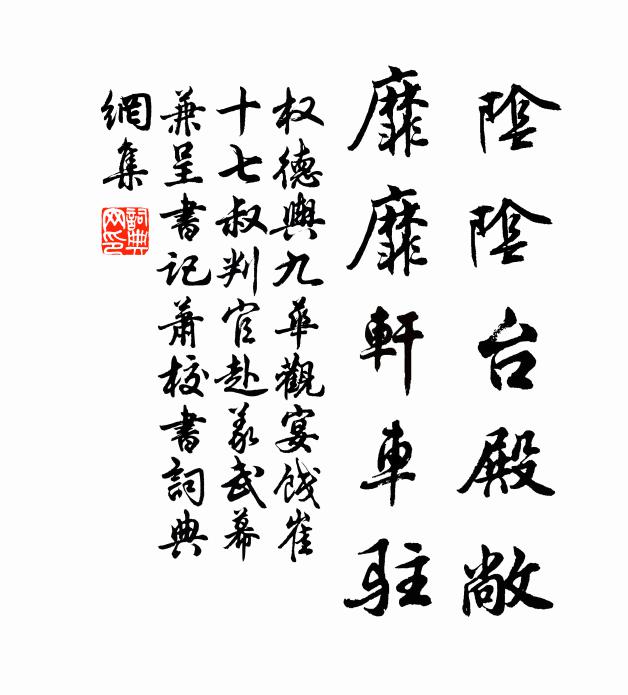 陰陰台殿敞
靡靡軒車駐
权德輿九華觀宴餞崔
十七叔判官赴義武幕
兼呈書記蕭校書詞典
網集
詞典
网印